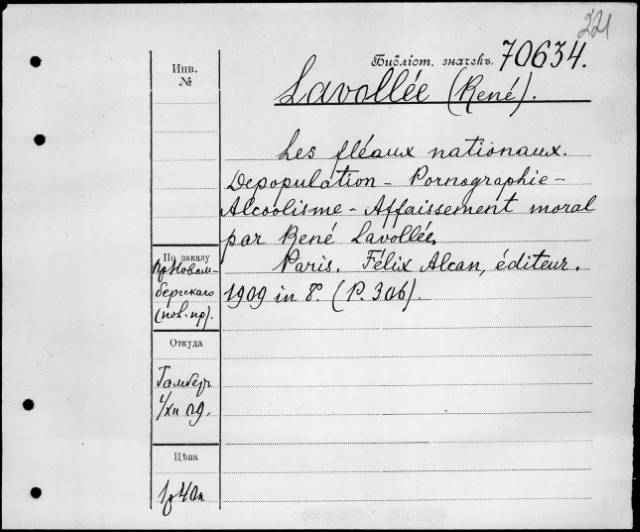 221
Библіот. значекъ. 70634.
Инв.
№
Lavollée (René).
Les fléaux nationaux.
Depopulation - Pornographie -
Alcoolisme - Affaissement moral
par René Lavollée.
Paris. Félix Alcan, éditeur.
1909 in 8°. (P. 306).
По заказу
пр. Новом-
бергскаго
(нов. пр).
Откуда
Гамбер
1/XII 09.
Цѣна
1р 40к